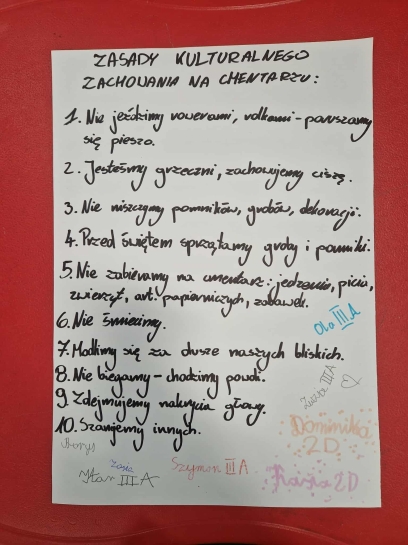 ZASADY KULTURALNEGO
ZACHOWANIA NA CMENTARZU:
1. Nie jeździmy rowerami, rolkami - poruszamy
się pieszo.
2. Jesteśmy grzeczni, zachowujemy ciszę.
3. Nie niszczymy pomników, grobów, dekoracji.
4. Przed świętem sprzątamy groby i pomniki.
5. Nie zabieramy na cmentarz: jedzenia, picia,
zwierząt, art. papierniczych, zabawek.
6. Nie śmiecimy.
Ola III A
7. Modlimy się za dusze naszych bliskich.
8. Nie biegamy - chodzimy powoli.
Zuzia III A
9. Zdejmujemy nakrycia głowy.
10. Szanujemy innych.
Dominika
2D
Borys
Zosia
Jan III A
Szymon III A
Frania 2D